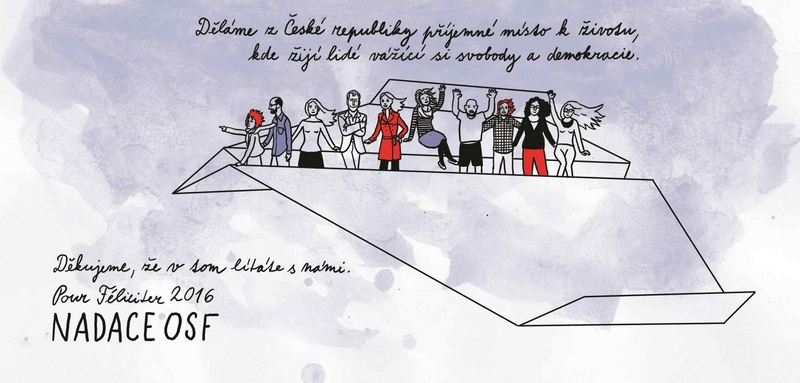 Děláme z České republiky příjemné místo k životu,
kde žijí lidé vážící si svobody a demokracie.
Děkujeme, že v tom lítáte s námi.
Pour Féliciter 2016
NADACE OSF